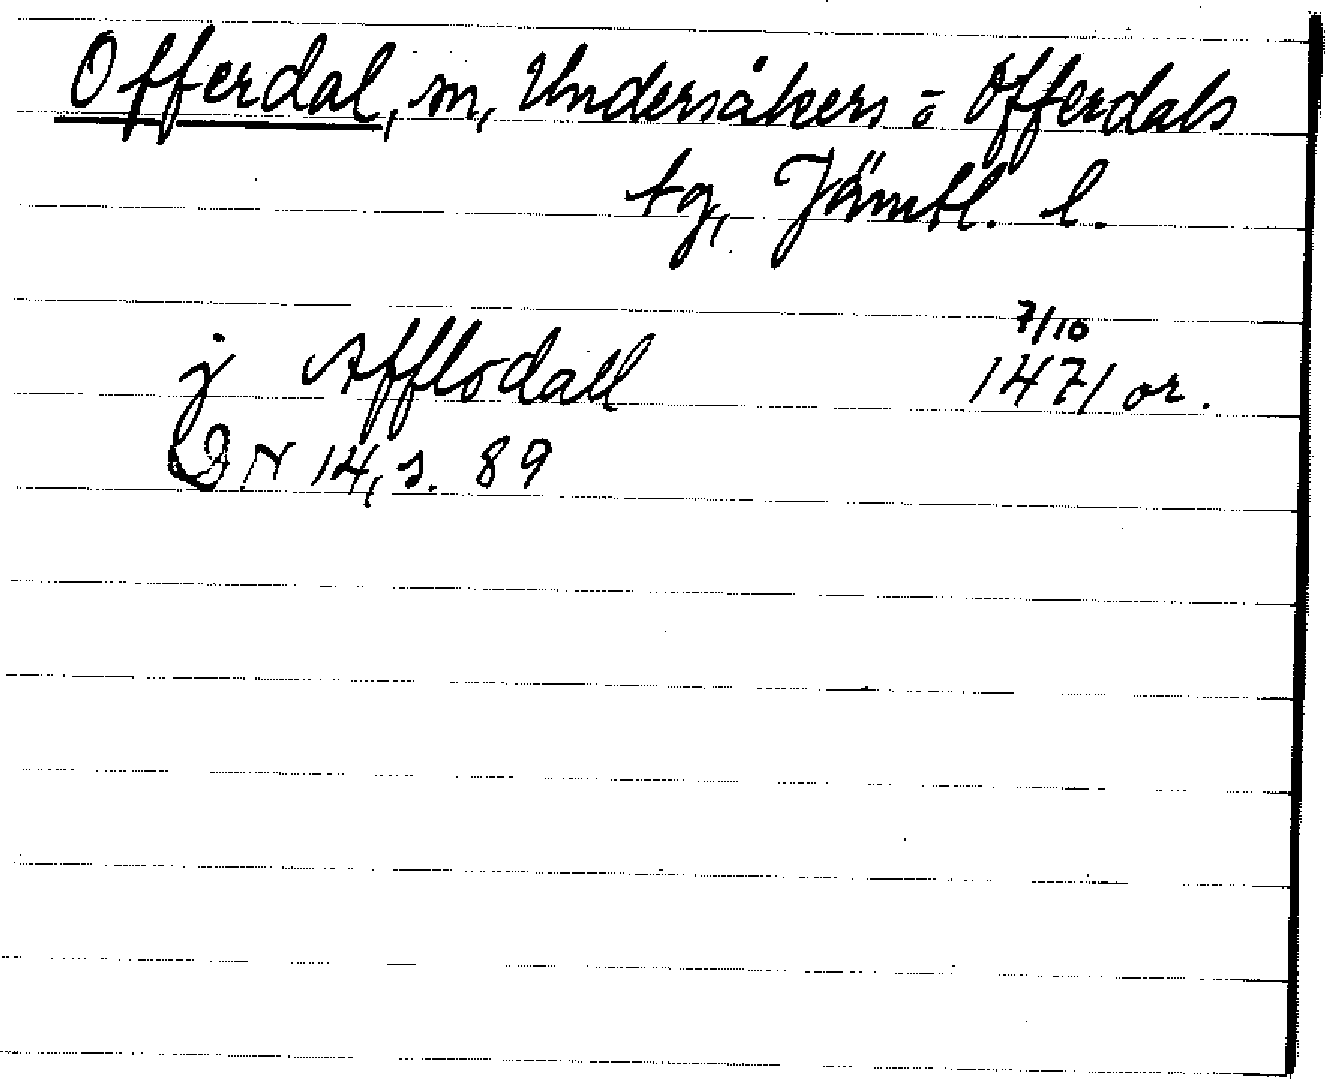 Offerdal, sn, Undersåkers o Offerdals
tg, Jämtl. l.
7/10
j Afflodall 1471 or.
DN 14, s. 89